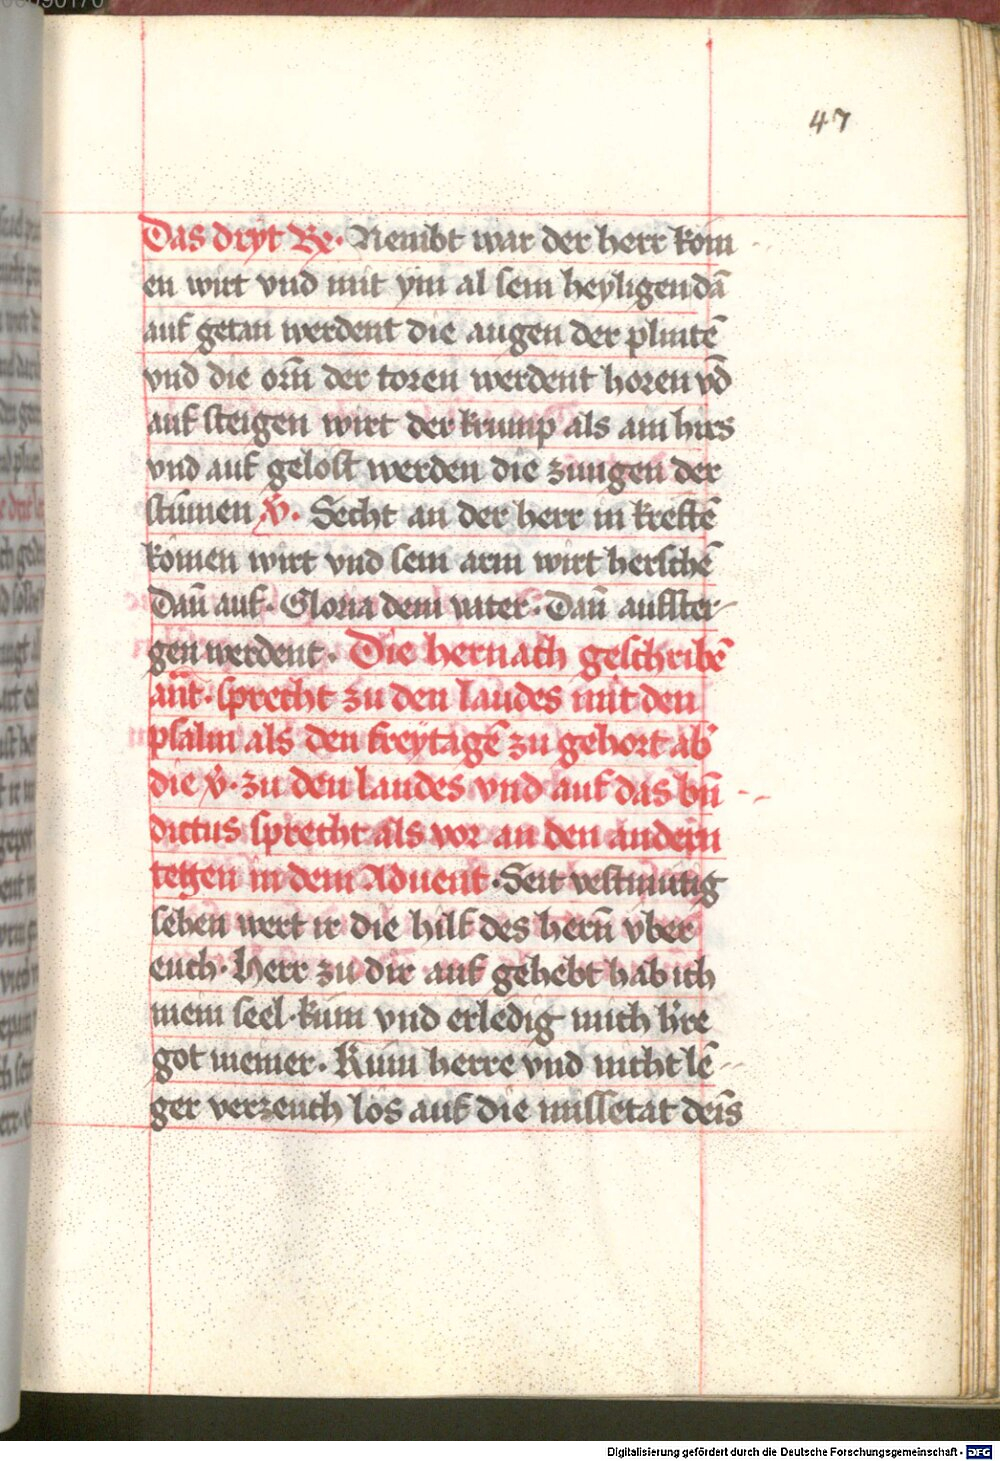 47
Das dryt Re. Nembt war der herr kom
en wirt vnd mit ym al sein heyligen dā
auf getan werdent die augen der plintē
vnd die orn̄ der toren werdent horen vd̄
auf steigen wirt der krump als ain hirs
vnd auf gelost werden die zungen der
stūmen ꝟ. Secht an der herr in kreftē
kōmen wirt vnd sein arm wirt herschē
Dan̄ auf. Gloria dem vater. Dan̄ aufstei
gen werdent. Die hernach geschribē
ant̄. sprecht zu den laudes mit den
psalm als den freytagē zu gehort ab̄
die ꝟ. zu den laudes vnd auf das bn̄
dictus sprecht als vor an den andern
tegen in dem Aduent. Seit vestmütig
sehen wert ir die hilf des hern̄ vber
euch. Herr zu dir auf gehebt hab ich
mein seel. kum vnd erledig mich h̄re
got meiner. Kum herre vnd nicht lē
ger verzeuch los auf die missetat deīs
Digitalisierung gefördert durch die Deutsche Forschungsgemeinschaft - DFG